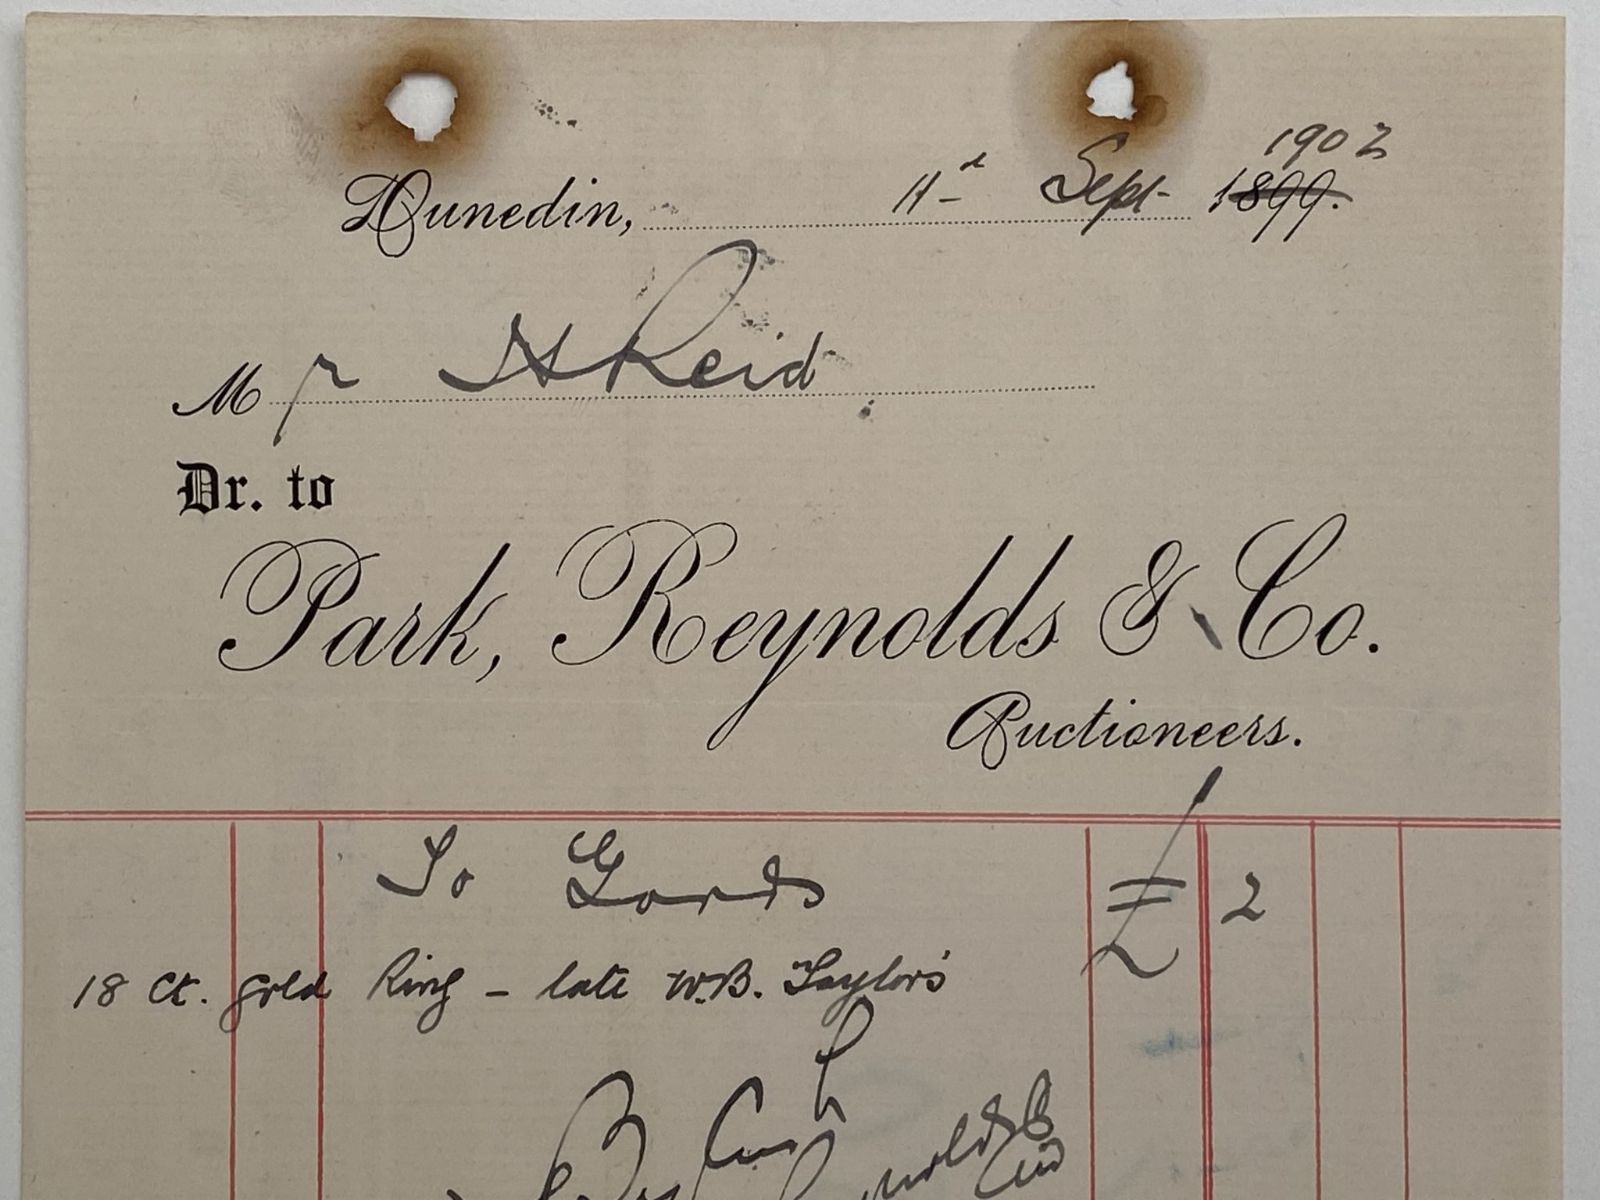 1902
Dunedin, 11d Sept 1899.
Mr H Reid
Dr. to
Park, Reynolds & Co.
Auctioneers.
To Goods £ 2
18 Ct. gold Ring - late W.B. Taylor's
By Cash